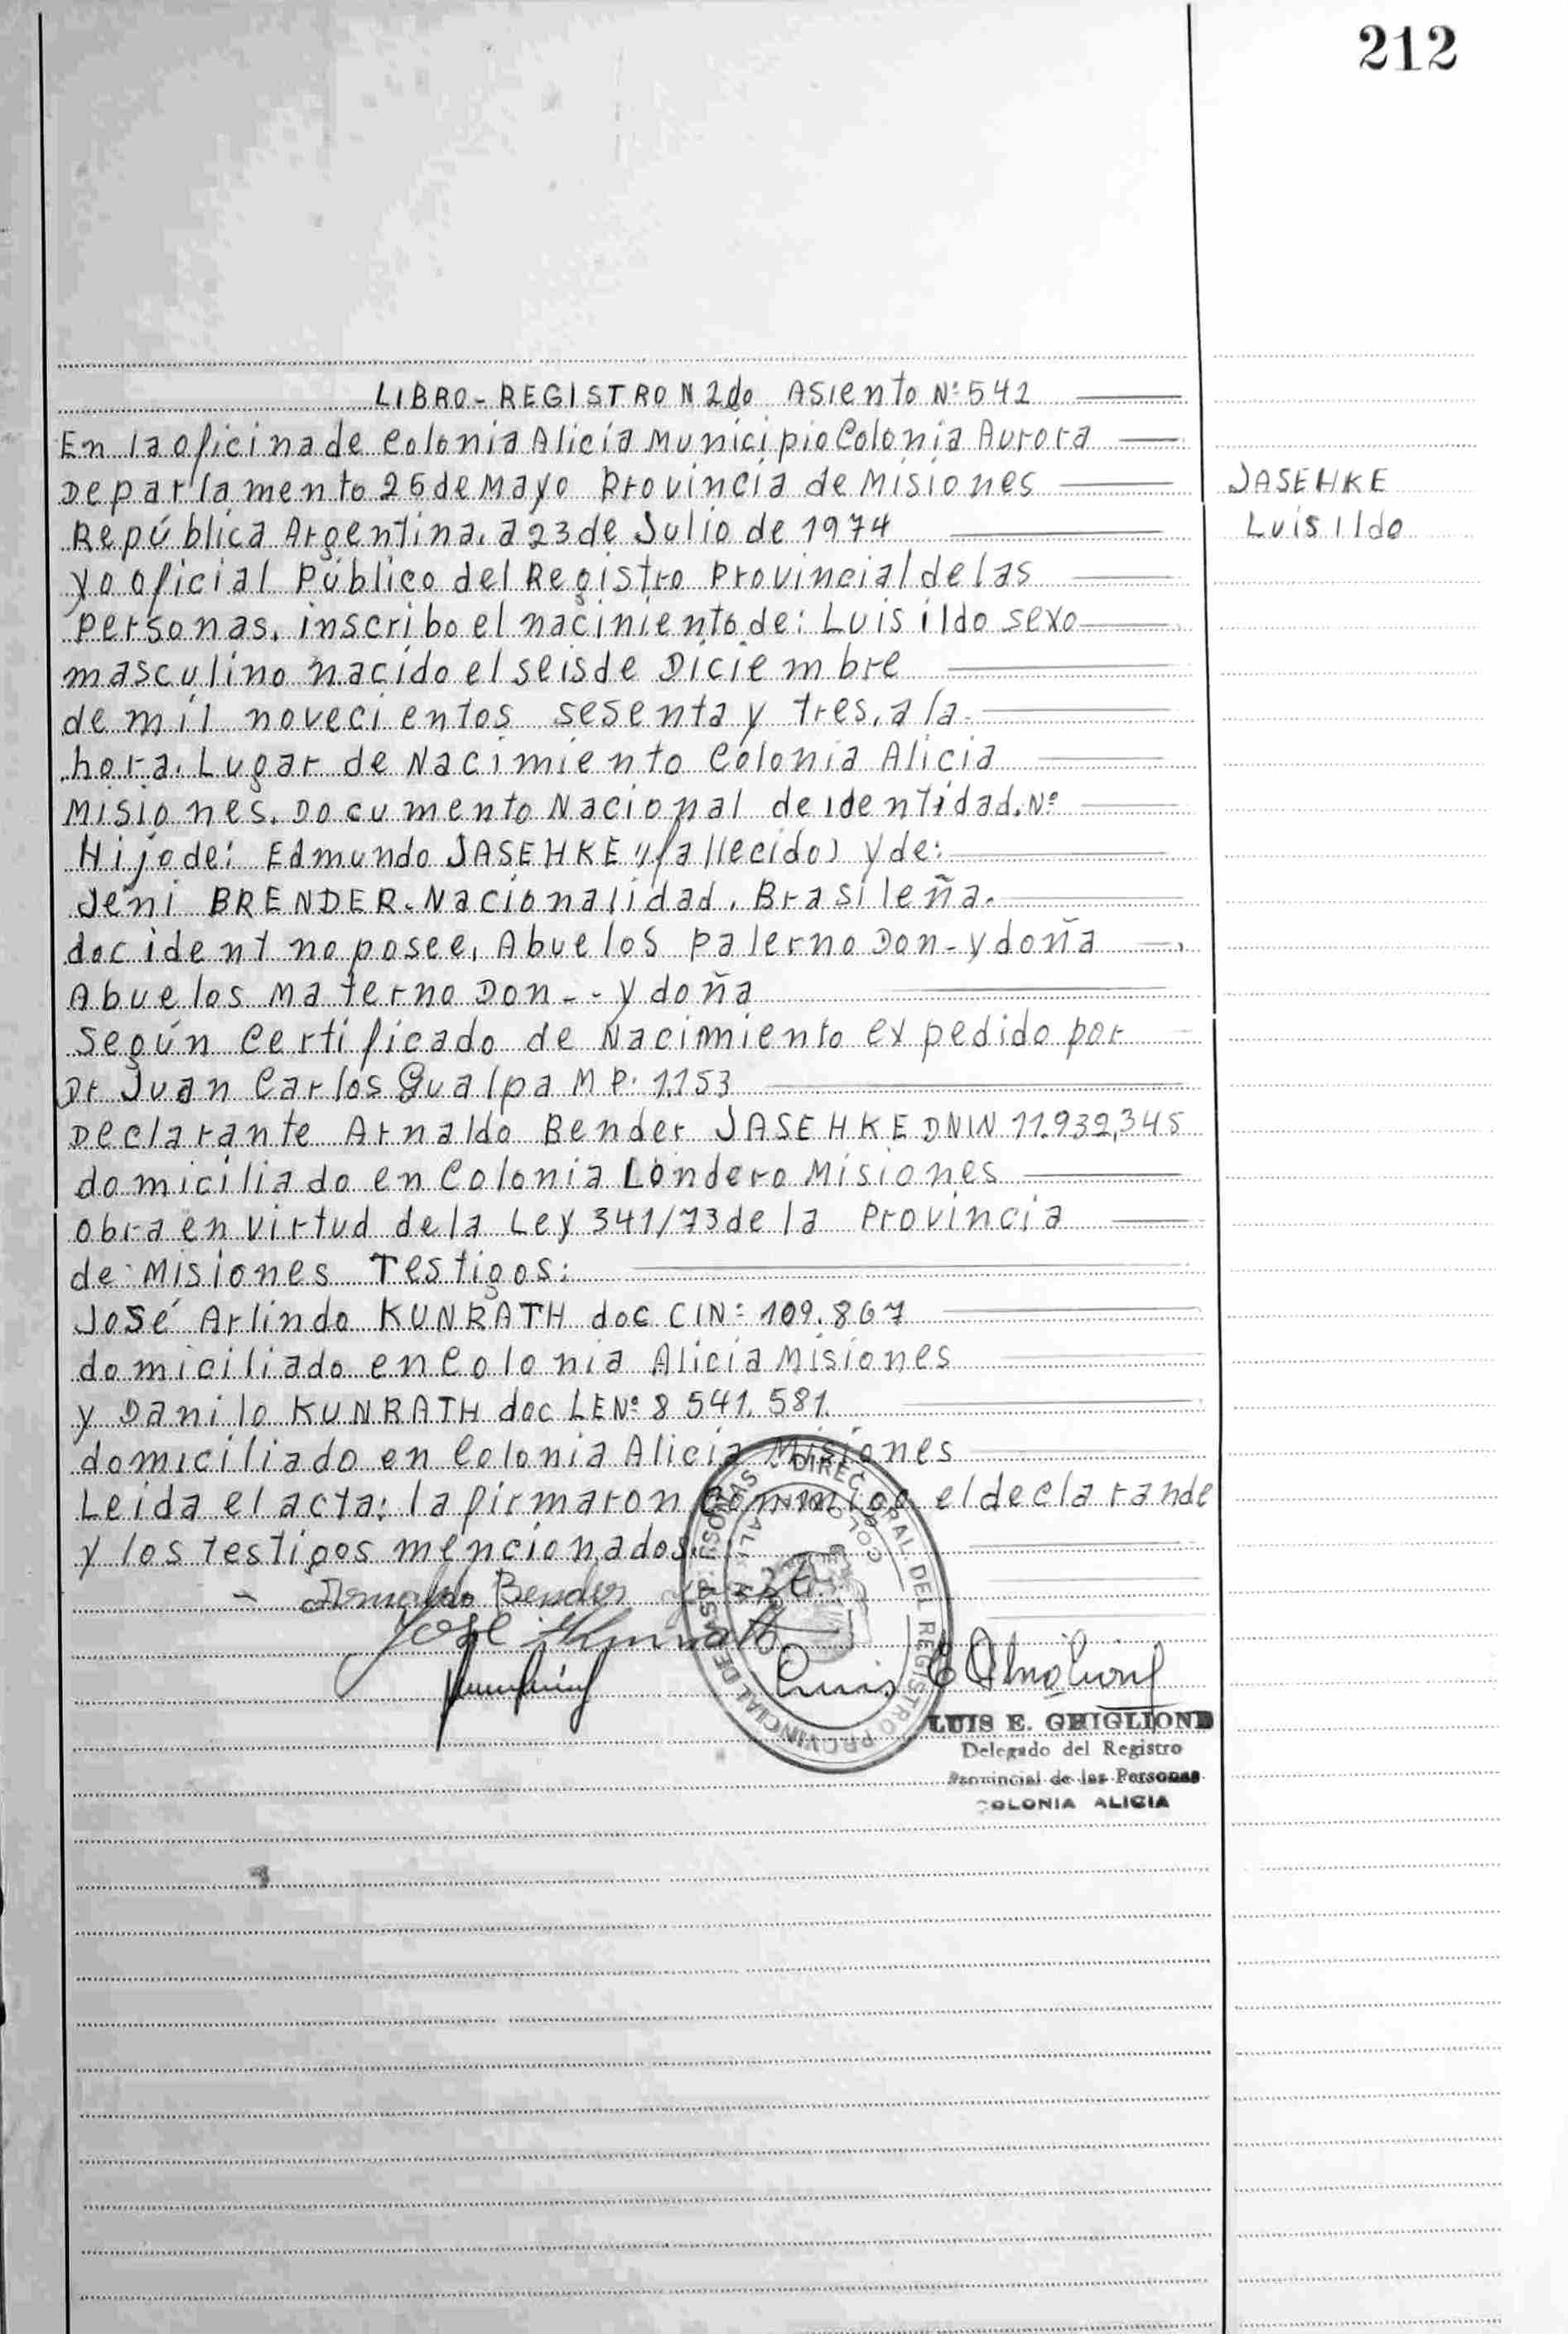 212
LIBRO-REGISTRO N 2do Asiento Nº 542
En la oficina de Colonia Alicia Municipio Colonia Aurora
Departamento 25 de Mayo Provincia de Misiones
JASEHKE
República Argentina. a 23 de Julio de 1974
Luis Ildo
yo oficial Público del Registro Provincial de las
personas. inscribo el naciniento de: Luis ildo sexo
masculino nacido el seis de Diciembre
de mil novecientos sesenta y tres, a la
hora. Lugar de Nacimiento Colonia Alicia
Misiones. Documento Nacional de identidad. Nº
Hijo de: Edmundo JASEHKE "(fallecido) y de:
Jeni BRENDER. Nacionalidad. Brasileña.
doc ident no posee, Abuelos paterno Don - y doña
Abuelos materno Don - - y doña
según certificado de Nacimiento expedido por
Dr Juan Carlos Gualpa M P: 1.153
Declarante Arnaldo Bender JASEHKE DNIN 11.939,345
domiciliado en Colonia Londero Misiones
obra en virtud de la Ley 341/73 de la Provincia
de Misiones Testigos:
José Arlindo KUNRATH doc CIN: 109.867
domiciliado en Colonia Alicia Misiones
y Danilo KUNRATH doc LENº 8 541. 581.
domiciliado en Colonia Alicia Misiones
Leida el acta: la firmaron conmigo el declarande
y los testigos mencionados.
Arnaldo Bender
José Kunrath
Luis E
DIREC. GRAL DEL REGISTRO PROVINCIAL DE LAS PERSONAS
LUIS E. GHIGLIONE
Delegado del Registro
Provincial de las Personas
COLONIA ALICIA